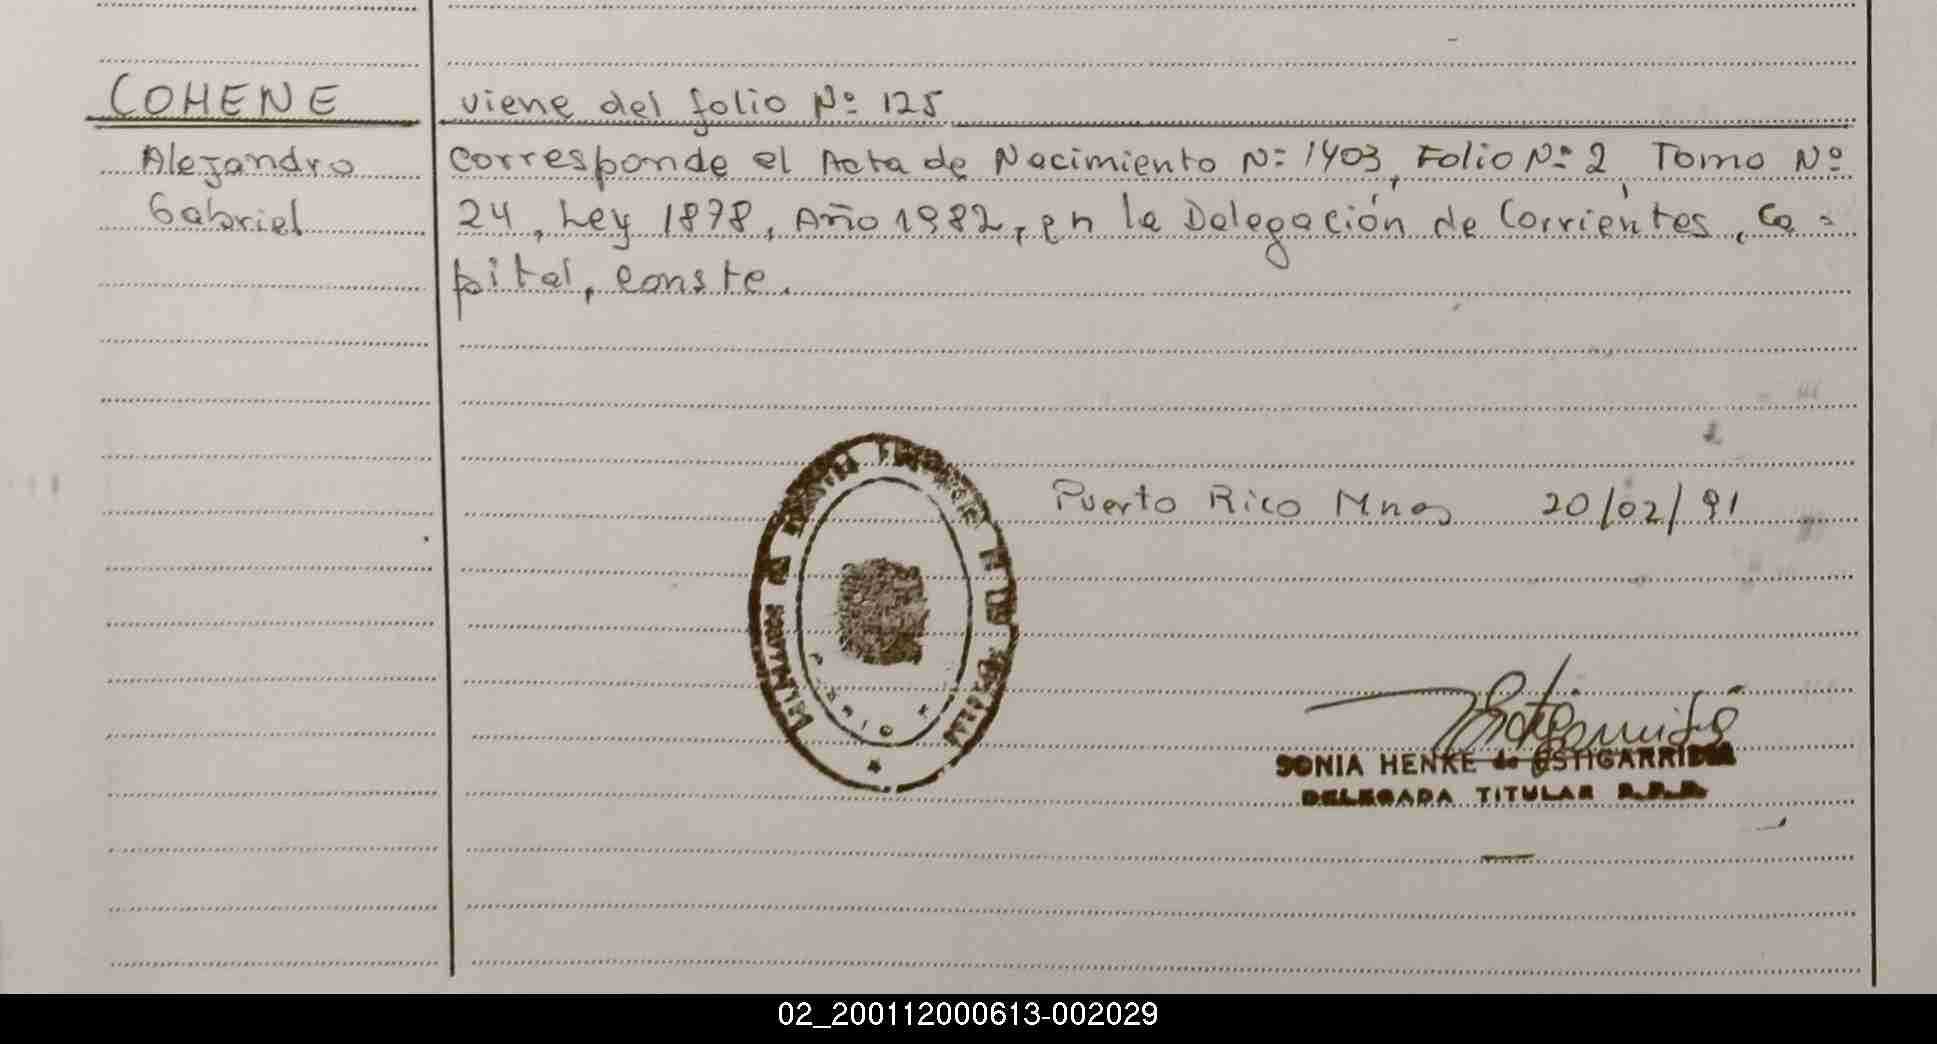 COHENE
viene del folio Nº 125
Alejandro
Corresponde el Acta de Nacimiento Nº 1403, Folio Nº 2, Tomo Nº
Gabriel
24, Ley 1878, Año 1982, en la Delegación de Corrientes, Ca-
pital, conste.
Puerto Rico Mnes 20/02/91
SONIA HENKE de ESTIGARRIBIA
DELEGADA TITULAR R.P.P.
02_200112000613-002029